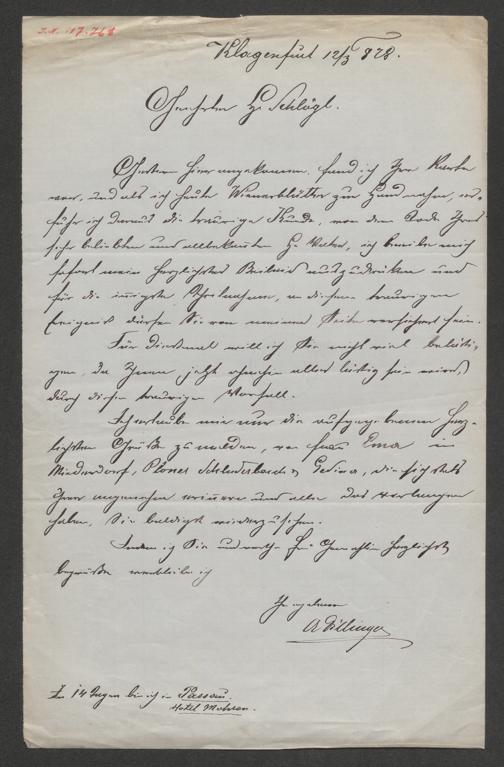 I.N. 17.768
Klagenfurt 12/3 878.
Geehrter H. Schlögl.
Gestern hier angekommen, fand ich Ihre Karte
vor, und als ich heute Wienerblätter zur Hand nahm, er-
fuhr ich daraus die traurige Kunde, von dem Tode Ihres
sehr beliebten und allbekannten H. Vater, ich beeile mich
sofort mein herzlichstes Beileid auszudrücken und
für die innigste Theilnahme, an diesem traurigen
Ereigniß dürfen Sie von meiner Seite versichert sein.
Für diesmal will ich Sie nicht viel belästi-
gen, da Ihnen jetzt ohnehin alles lästig sein wird,
durch diesen traurigen Vorfall.
Ich erlaube mir nur die aufgegebenen herz-
lichsten Grüße zu melden, von Frau Ema in
Niederdorf, Ploner Schluderbach &, die sich stets
Ihrer angenehm erinnern und alle das Verlangen
haben, Sie baldigst wiederzusehen.
Indem ich Sie und werthe Fr Gemahlin herzlichst
begrüße verbleibe ich
Ihr ergebener
A Dillinger
In 14 Tagen bin ich in Passau.
Hotel Mohren.